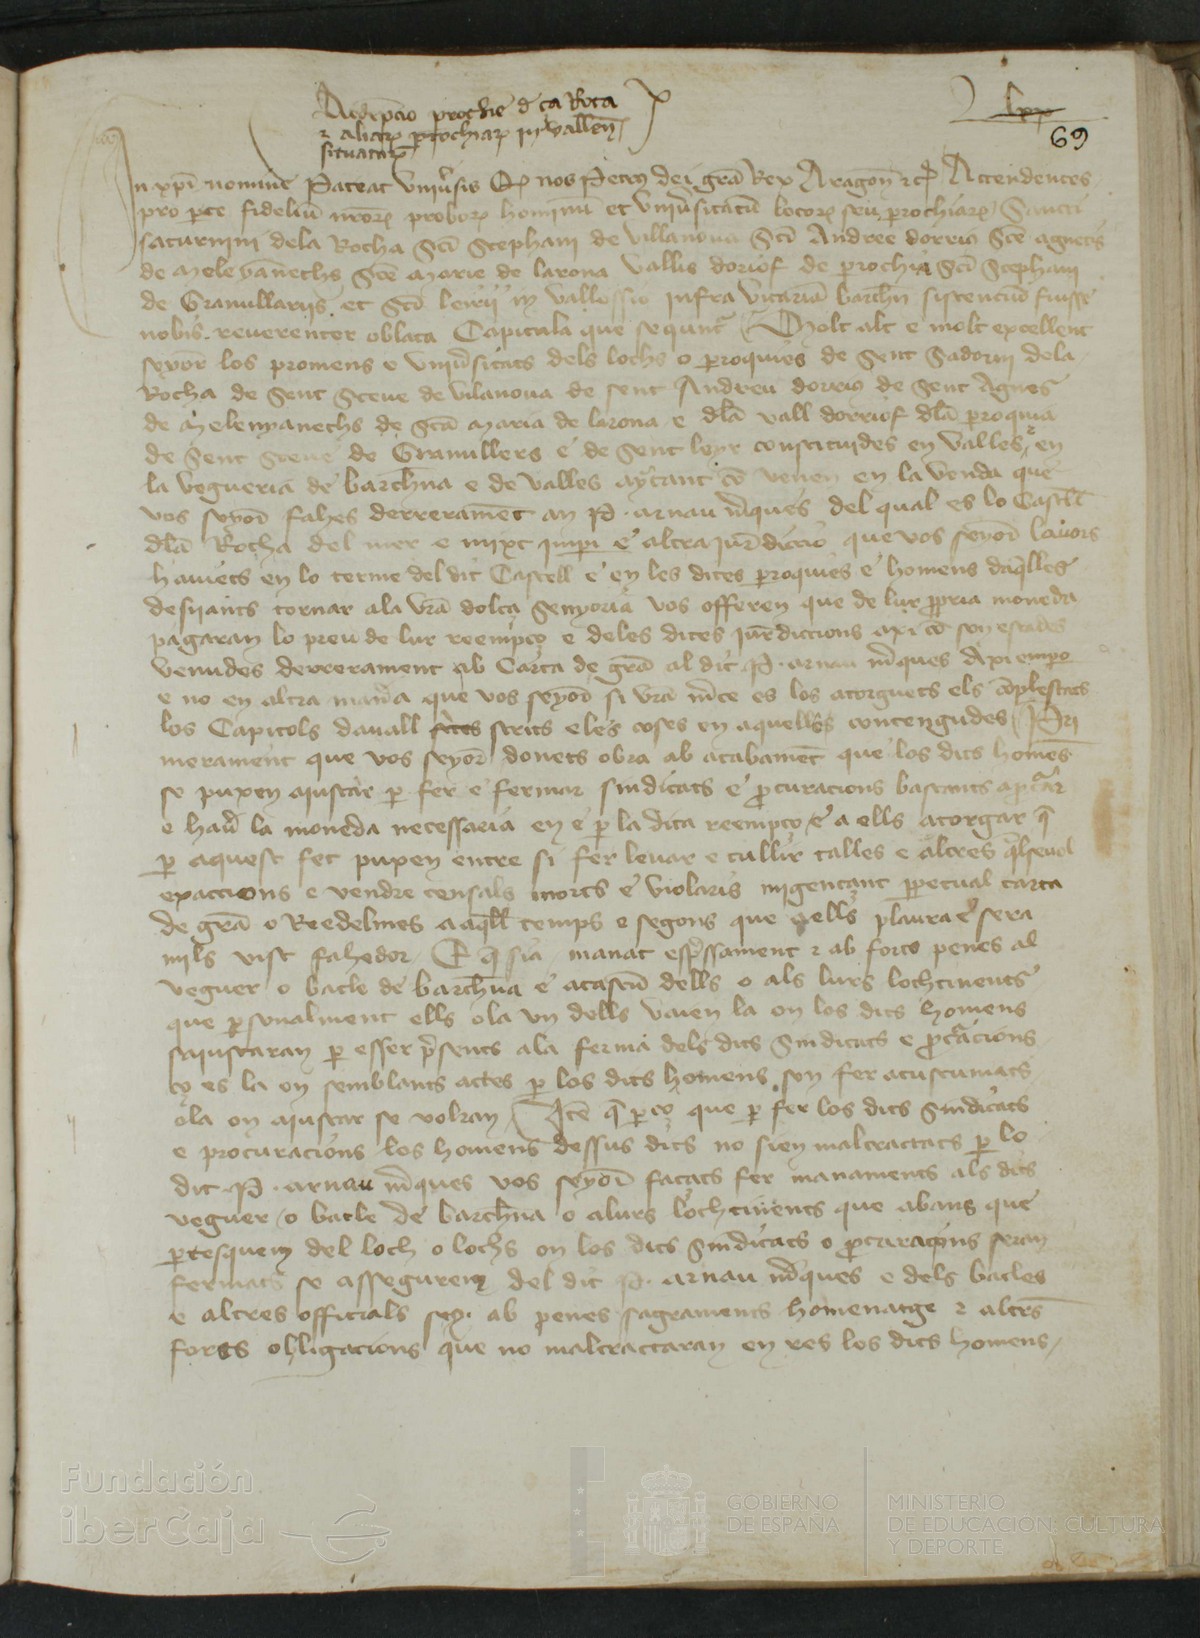 Redempcio prochie de ça Roca
lxx
⁊ aliar̃ prochiar̃ in vallen̄
69
situatar̃
In xp̄i nomine Pateat uniũsis Q nos Petrus dei gr̄a Rex Aragon̄ ⁊c̃ Attendentes
pro pte fideliũ nr̄or̃ probor̃ hominũ et uniũsitatũ locor̃ seu prochiar̃ Sancti
saturnini dela Rocha Sc̄i Stephani de villanova Sc̄i Andree dorriu Sc̄e agnetis
de Melevan̄echs Sc̄e Marie de larona vallis doriof de prochia Sc̄i Stephani
de Granullariis et Sc̄i leirii in vallossio infra vicariã barchn̄ sistenciũ fuisse
nobis reverenter oblata Capitala que sequntr̃ Molt alt e molt excellent
seyor los promens e uniũsitats dels lochs o proquies de Sent Sadorni dela
Rocha de Sent Steve de vilanova de sent Andreu dorriu de Sent Agnes
de Melenyanechs de Sc̄a Maria de larona e dl̄a vall dorriof dl̄a proquia
de Sent Steve de Granullers e de Sent leyr constituides en valles e en
la vegueria de barchn̄a e de valles aytant cõ venen en la venda que
vos seyor fahes derreramẽt an P̃ . arnau m̃ques del qual es lo Castell
dl̄a Rocha del mer e mixt imp̃i e altra jur̃diccio que vos seyor lavors
haviets en lo terme del dit Castell e en les dites proquies e homens daq̃lles
desijants tornar ala vr̄a dolça senyoria vos offeren que de lur ppria moneda
pagaran lo preu de lur reempço e deles dites jur̃diccions axi cõ son estades
venudes derrerament ab Carta de gr̄a al dit P̃ . arnau m̃ques Axi empo
e no en altra man̄a que vos seyor si vr̄a m̃ce es los atorguets els cõplescats
los Capitols davall scrits e les coses en aquelles contengudes Pri
merament que vos seyor donets obra ab acabamẽt que los dits homẽs
se puxen aiustar p fer e fermar sindicats e pcuracions bastants a
e haũ la moneda necessaria en e p la dita reempço e a ells atorgar q̃
p aquest fet puxen entre si fer levar e cullir talles e altres q̃lsevol
exaccions e vendre censals morts e violaris migençant ppetual carta
de gr̄a o Reedelmes aaq̃ll temps e segons que a ells plaura e sera
mils vist fahedor E q̃ sia manat exp̃ssament ⁊ ab forts penes al
veguer o batle de barchn̄a e acascũ dells o als lurs lochtinents
que psonalment ells ola un dells vaien la on los dits homens
saiustaran p esser p̃sents ala ferma dels dits sindicats e pc̃acions
ço es la on semblants actes p los dits homens son fer acustumats
ola on aiustar se volran Itẽ q̃ pço que p fer los dits sindicats
e procuracions los homens dessus dits no sien maltractats p lo
dit P̃ . arnau m̃ques vos seyor façats fer manaments als dits
veguer o batle de barchn̄a o alurs lochtinents que abans que
ptesquen del loch o lochs on los dits sindicats o pcuracions seran
fermats se asseguren del dit P̃ . arnau m̃ques e dels batles
e altres officials seus ab penes sagraments homenatge ⁊ altr̃s
forts obligacions que no maltractaran en res los dits homens
Fundación
iberCaja
GOBIERNO
DE ESPAÑA
MINISTERIO
DE EDUCACIÓN, CULTURA
Y DEPORTE